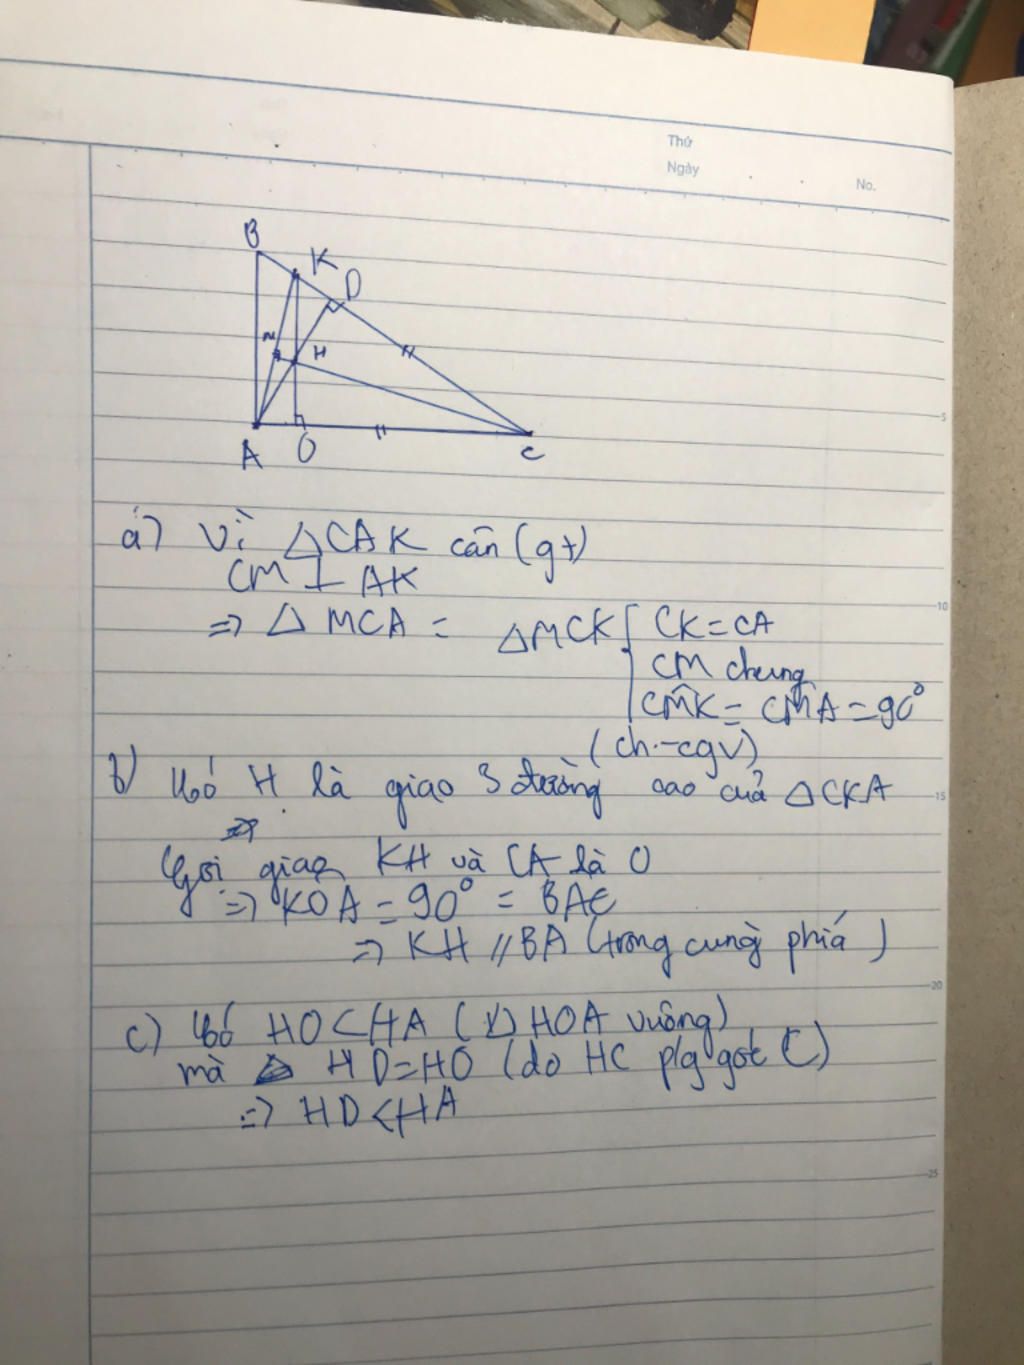 Thứ
Ngày
No.
B
K
D
M
H
A
O
C
5
a) Vì △CAK cân (gt)
CM ⊥ AK
10
⇒ △ MCA = △MCK { CK = CA
CM chung
CMK = CMA = 90°
(ch-cgv)
b) Có H là giao 3 đường cao của △CKA
15
Gọi giao KH và CA là O
⇒ KOA = 90° = BAC
⇒ KH // BA (trong cùng phía)
20
c) Có HO < HA (△ HOA vuông)
mà HD = HO (do HC p/g góc C)
⇒ HD < HA
25